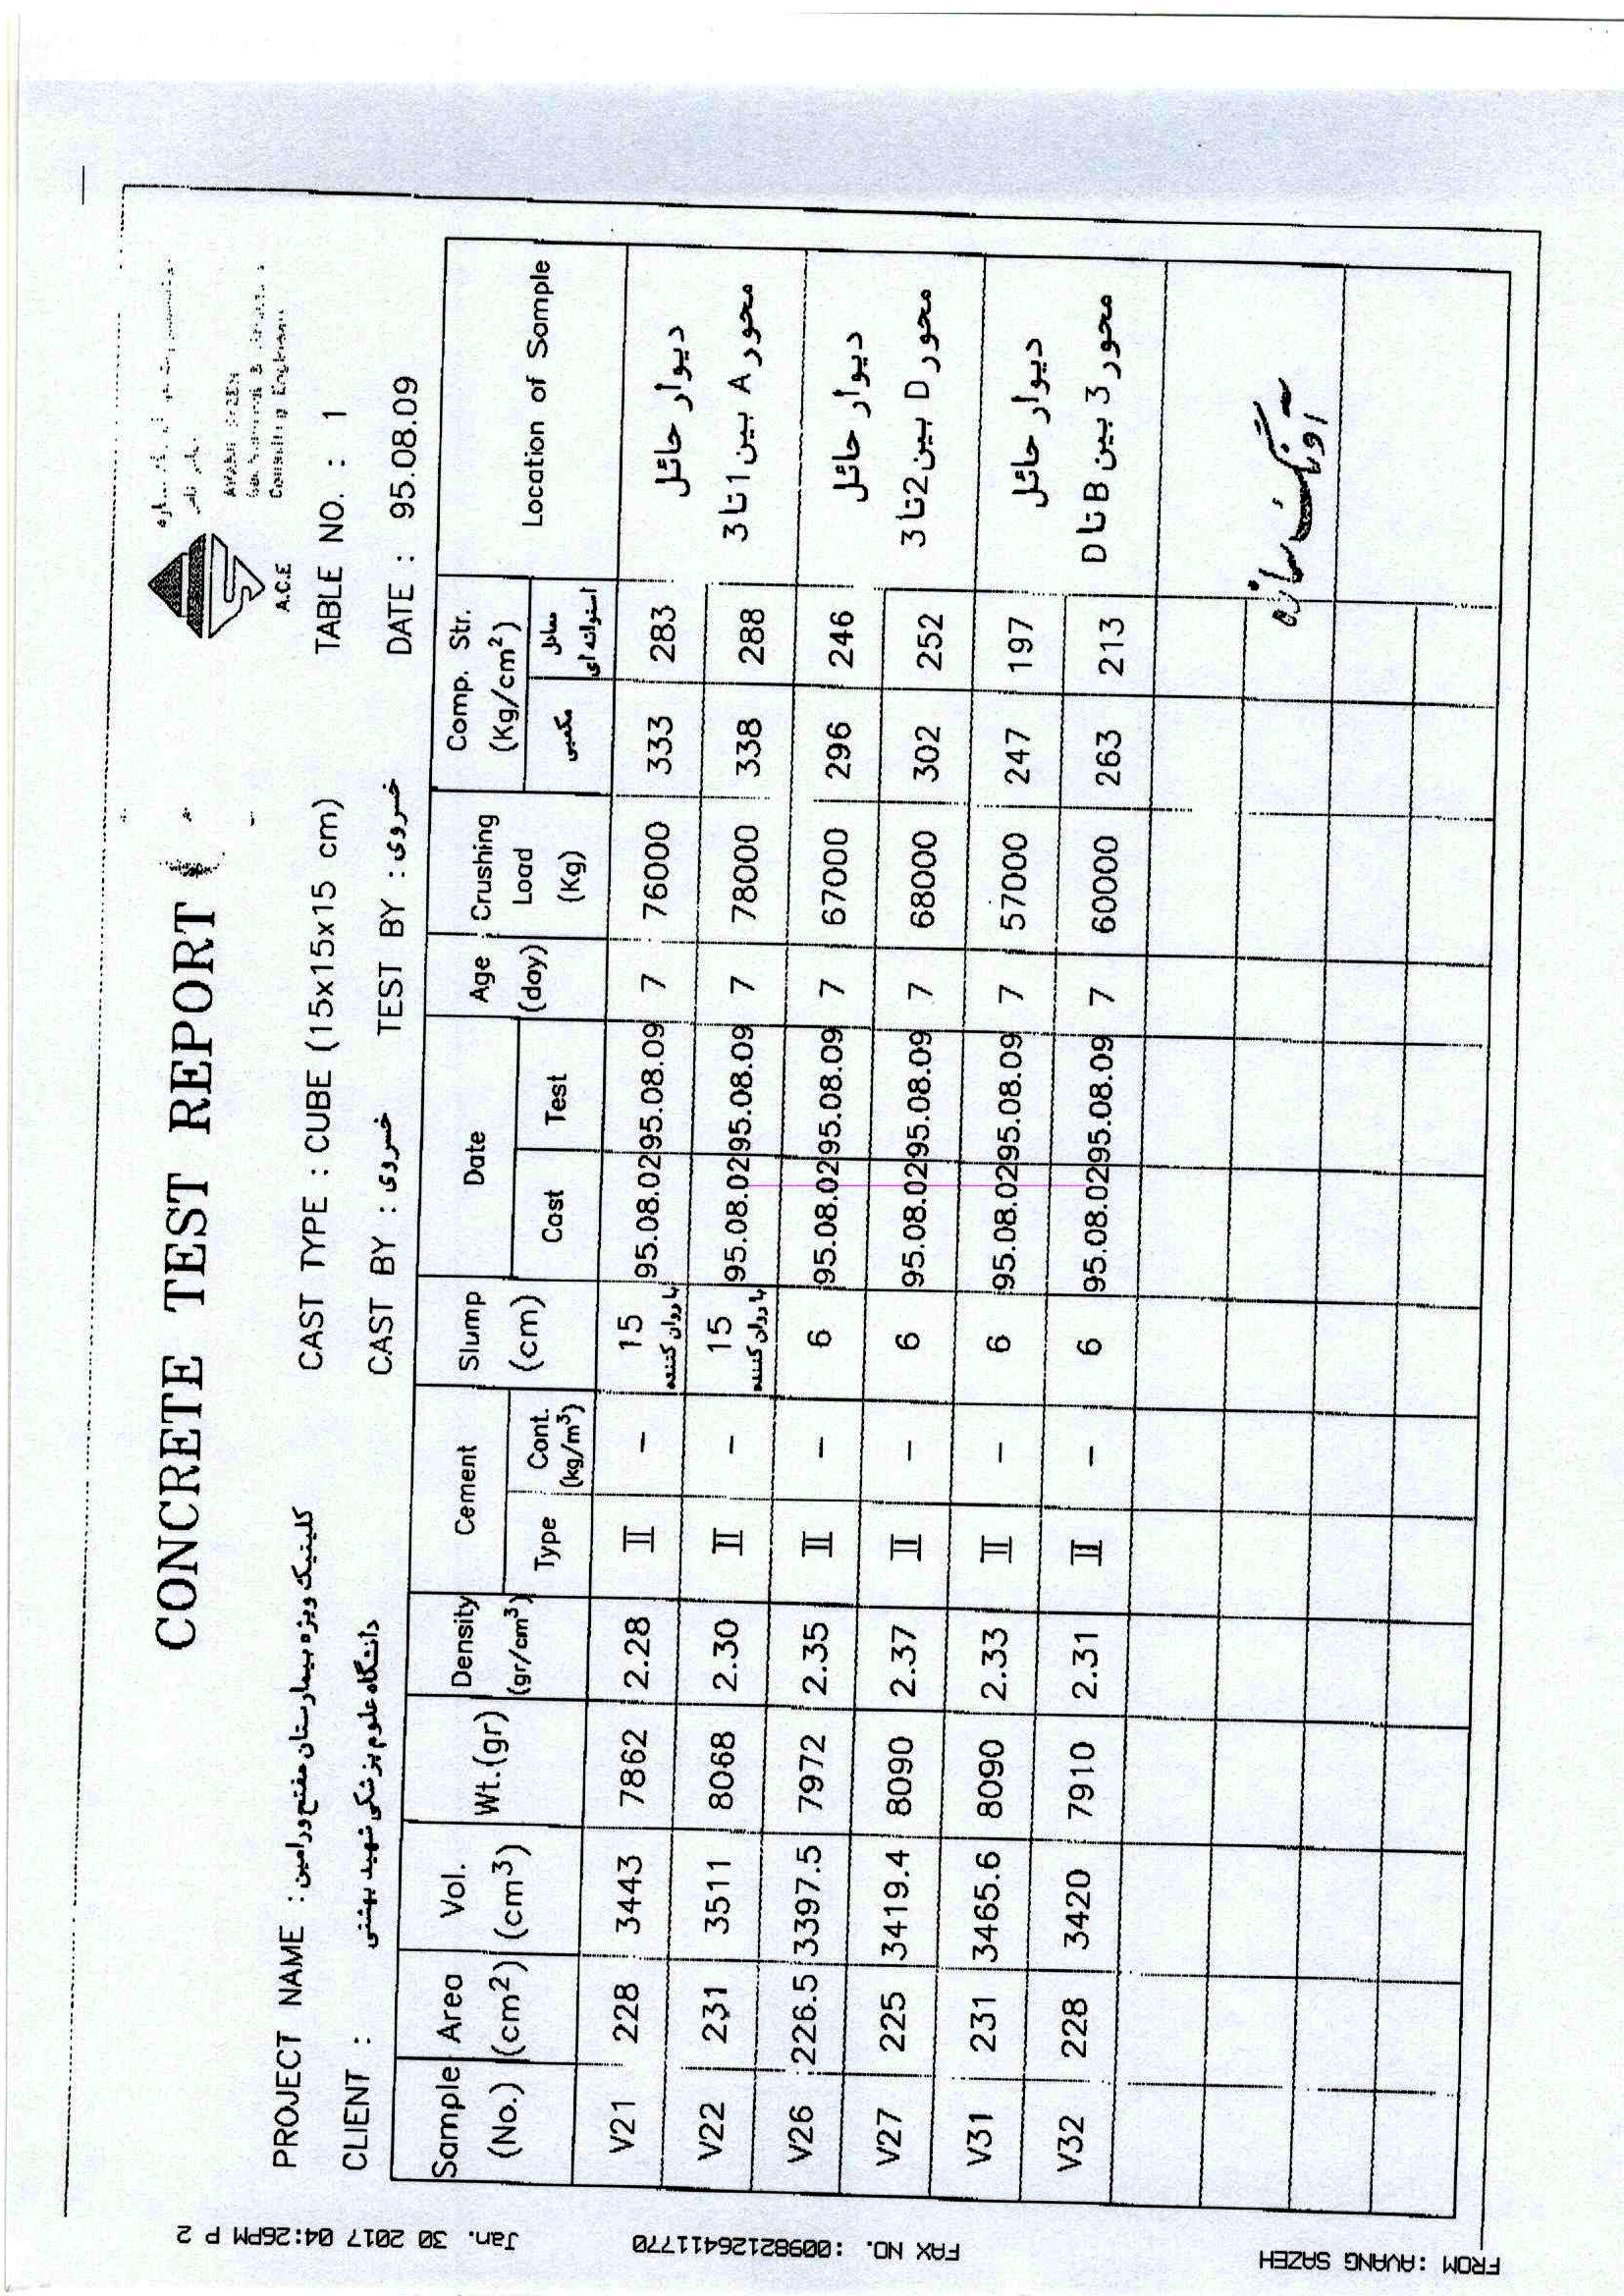 CONCRETE TEST REPORT
A.C.E
Consulting Engineers
PROJECT NAME : کلینیک ویژه بیمارستان مفتح ورامین
CAST TYPE : CUBE (15x15x15 cm)
TABLE NO. : 1
CLIENT : دانشگاه علوم پزشکی شهید بهشتی
CAST BY : خسروی
TEST BY : خسروی
DATE : 95.08.09
Sample (No.) Area (cm2) Vol. (cm3) Wt.(gr) Density (gr/cm3) Cement Type Cont. (kg/m3) Slump (cm) Date Cast Test Age (day) Crushing Load (Kg) Comp. Str. (Kg/cm2) مکعبی معادل استوانه ای Location of Sample
V21 228 3443 7862 2.28 II – 15 با روان کننده 95.08.02 95.08.09 7 76000 333 283 دیوار حائل
V22 231 3511 8068 2.30 II – 15 با روان کننده 95.08.02 95.08.09 7 78000 338 288 محور A بین 1 تا 3
V26 226.5 3397.5 7972 2.35 II – 6 95.08.02 95.08.09 7 67000 296 246 دیوار حائل
V27 225 3419.4 8090 2.37 II – 6 95.08.02 95.08.09 7 68000 302 252 محور D بین 2 تا 3
V31 231 3465.6 8090 2.33 II – 6 95.08.02 95.08.09 7 57000 247 197 دیوار حائل
V32 228 3420 7910 2.31 II – 6 95.08.02 95.08.09 7 60000 263 213 محور 3 بین B تا D
FROM : AVANG SAZEH
FAX NO. : 00982126411770
Jan. 30 2017 04:26PM P 2